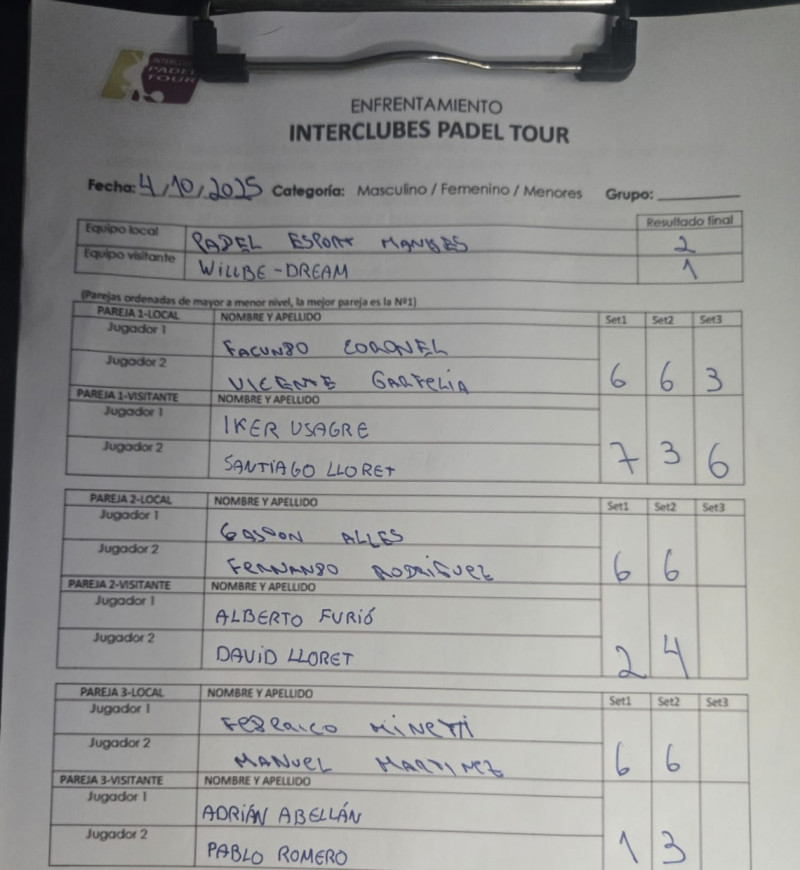 INTERCLUBES
PADEL
TOUR
ENFRENTAMIENTO
INTERCLUBES PADEL TOUR
Fecha: 4/10/2025 Categoría: Masculino / Femenino / Menores Grupo:
Resultado final
Equipo local PADEL ESPORT MANISES 2
Equipo visitante WILLBE-DREAM 1
(Parejas ordenadas de mayor a menor nivel, la mejor pareja es la Nº1)
PAREJA 1-LOCAL NOMBRE Y APELLIDO Set1 Set2 Set3
Jugador 1 FACUNDO CORONEL
Jugador 2 VICENTE 6 6 3
PAREJA 1-VISITANTE NOMBRE Y APELLIDO
Jugador 1 IKER USAGRE
Jugador 2 SANTIAGO LLORET 7 3 6
PAREJA 2-LOCAL NOMBRE Y APELLIDO Set1 Set2 Set3
Jugador 1 GASTON ALLES
Jugador 2 FERNANDO RODRIGUEZ 6 6
PAREJA 2-VISITANTE NOMBRE Y APELLIDO
Jugador 1 ALBERTO FURIÓ
Jugador 2 DAVID LLORET 2 4
PAREJA 3-LOCAL NOMBRE Y APELLIDO Set1 Set2 Set3
Jugador 1 FEDERICO MINETTI
Jugador 2 MANUEL MARTINEZ 6 6
PAREJA 3-VISITANTE NOMBRE Y APELLIDO
Jugador 1 ADRIÁN ABELLÁN
Jugador 2 PABLO ROMERO 1 3